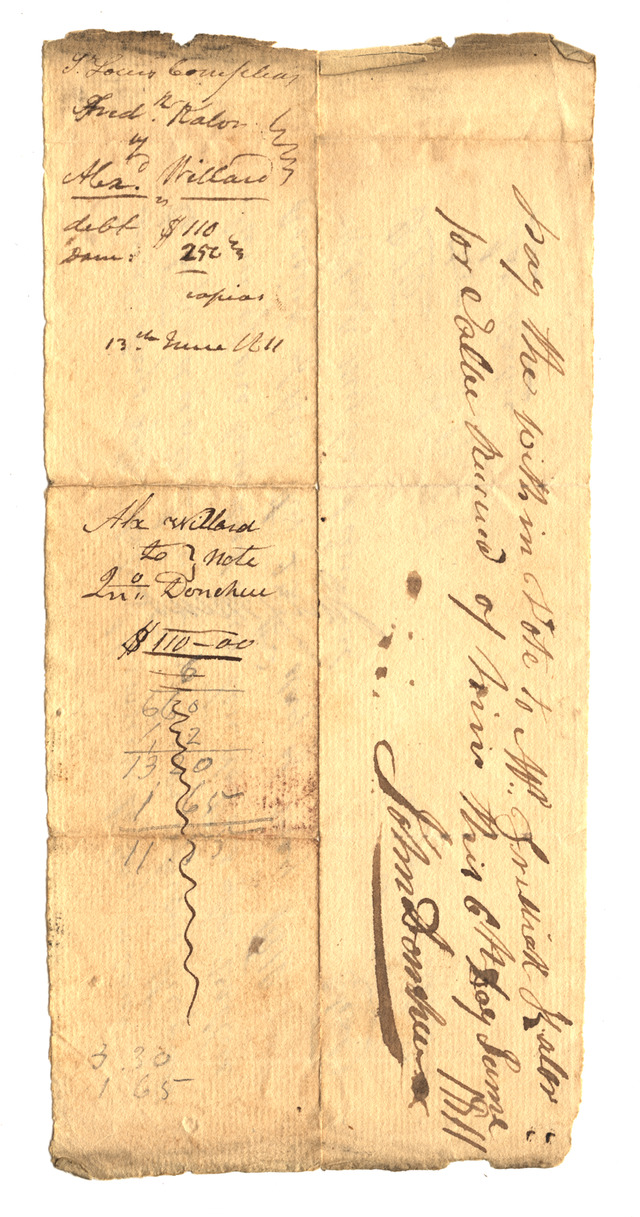 St Louis Com Pleas
Fredk. Kalor
vs
Alexd. Willard
debt $110
Dam: 250
capias
13th June 1811
Alx Willard
to } note
Jno Donehue
$110–00
6
660
1 2
13 20
1 65
11
3.30
1 65
pay the with in Note to Mr Fredrick Kalor
for Vallue Received of him this 6th Day June
1811
John Donehue